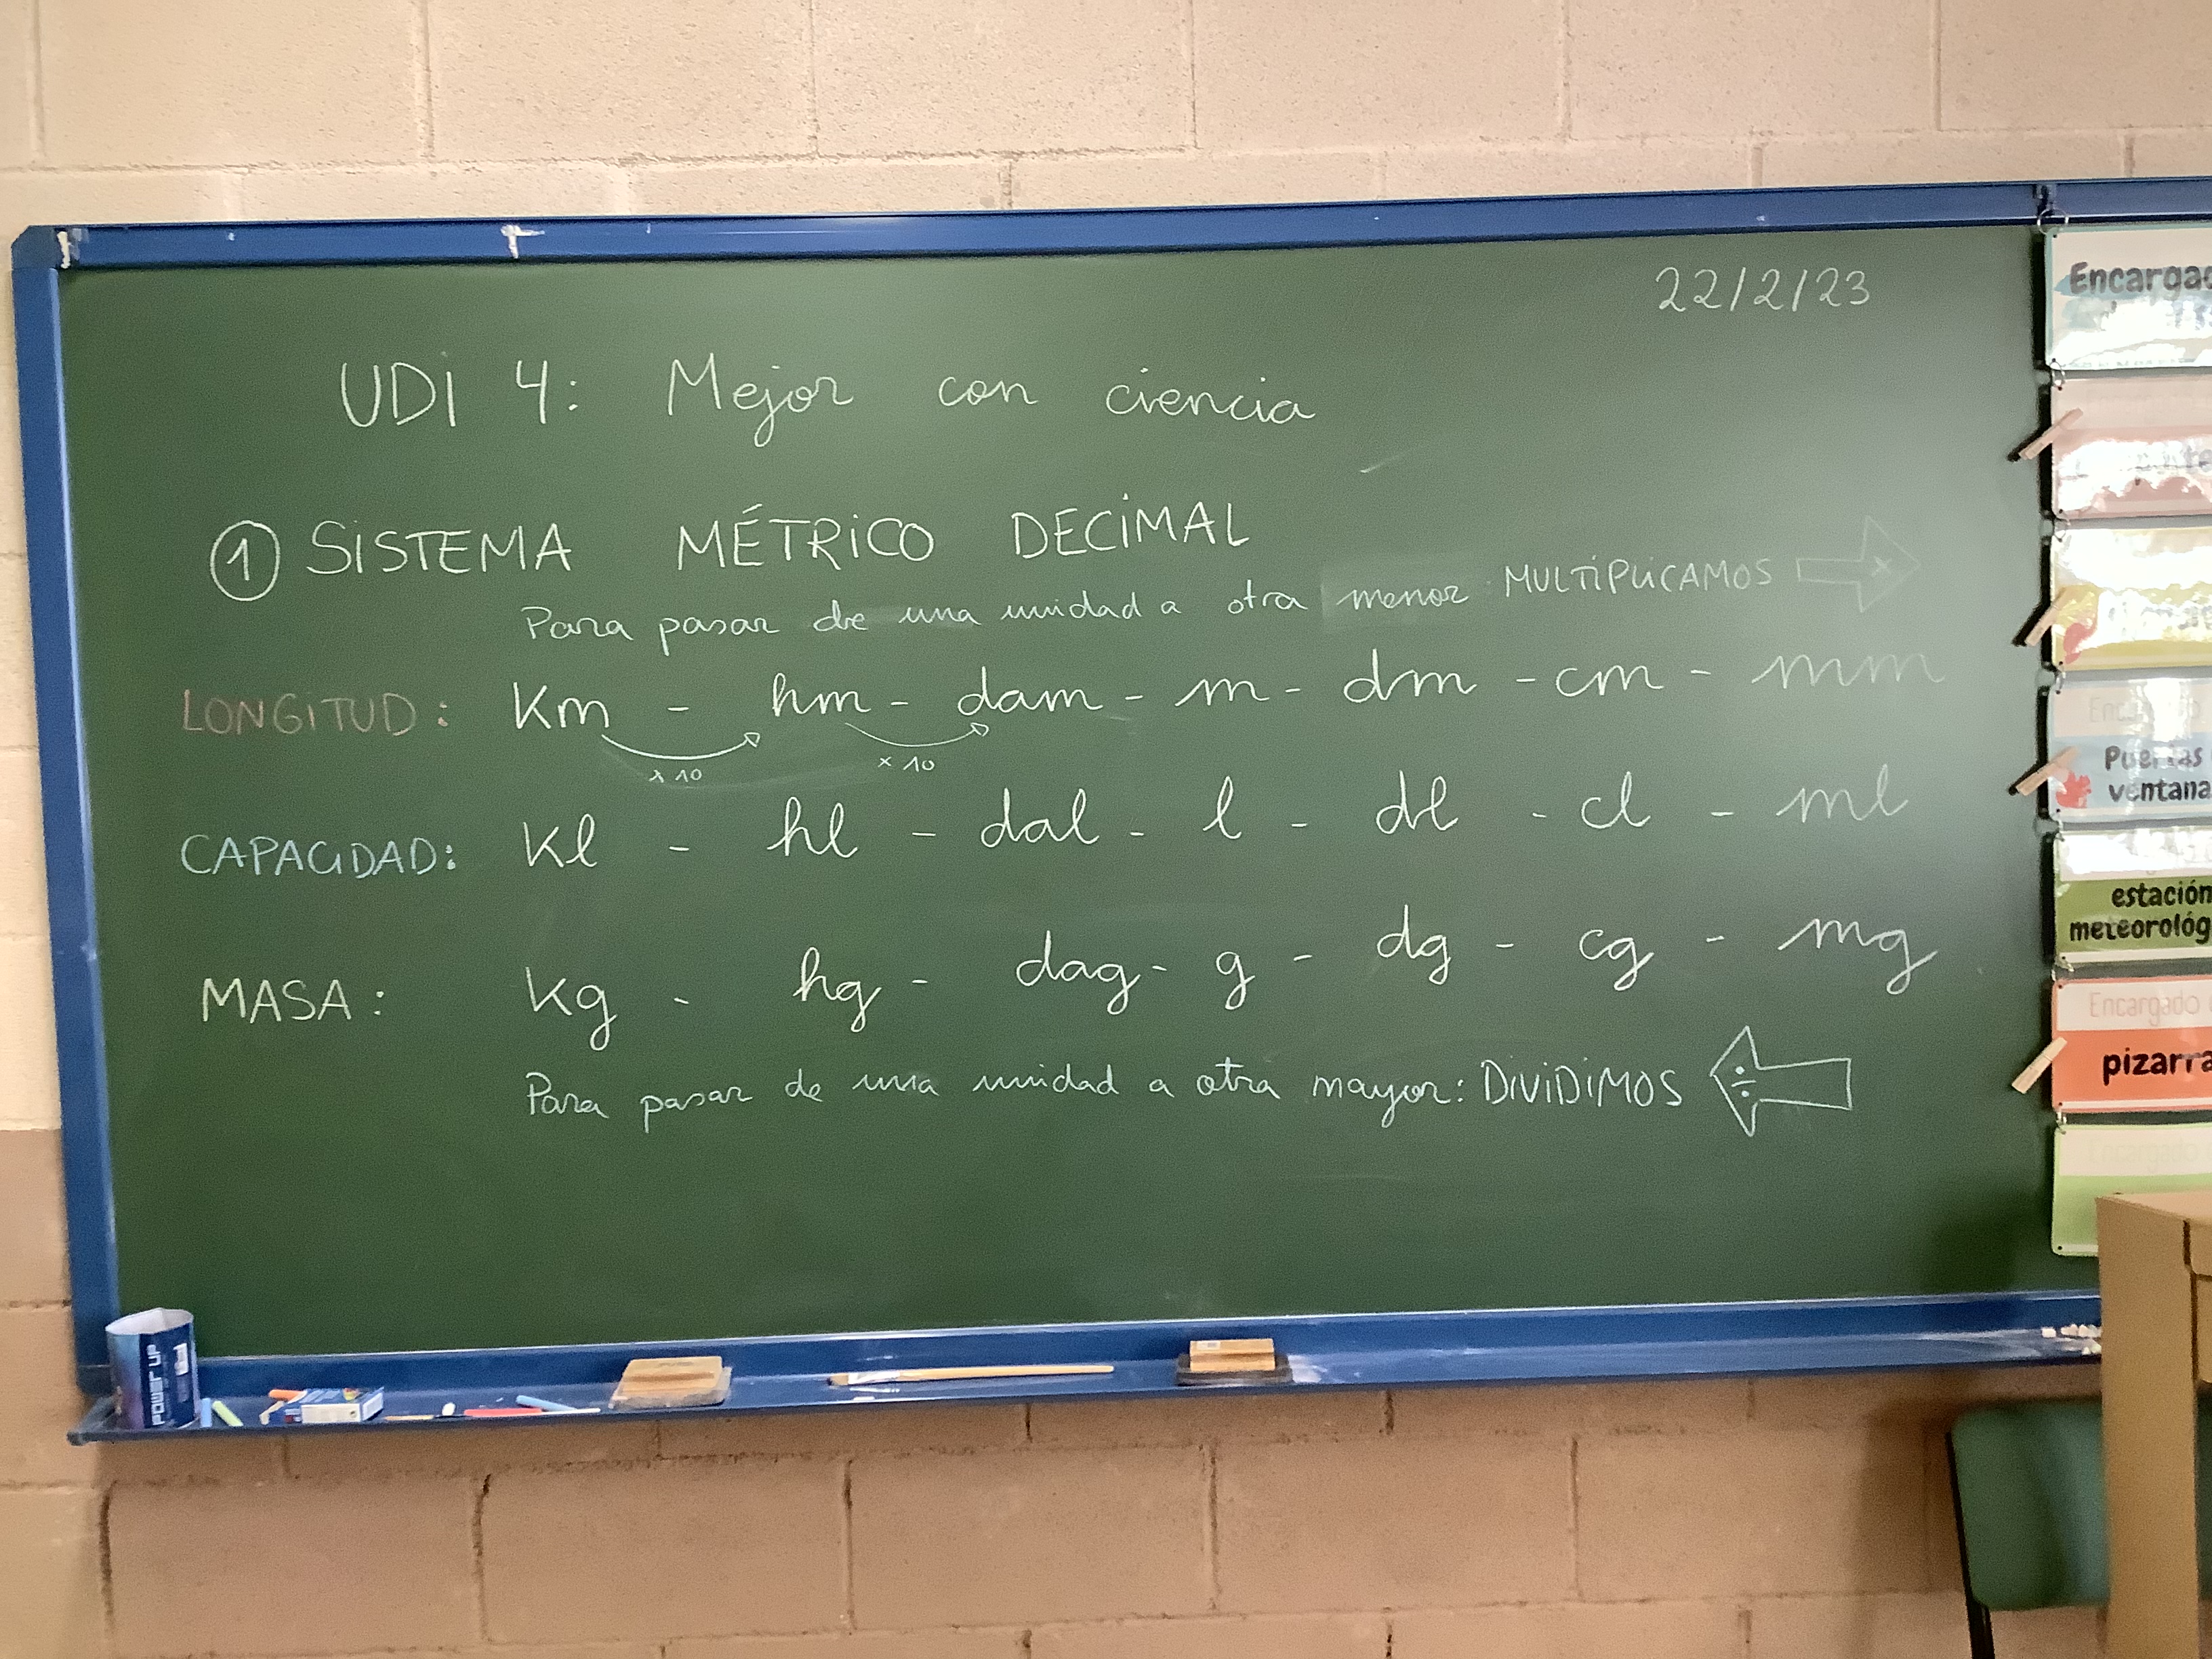 22/2/23
UDI 4: Mejor con ciencia
1 SISTEMA MÉTRICO DECIMAL
Para pasar de una unidad a otra menor MULTIPLICAMOS x
LONGITUD: Km - hm - dam - m - dm - cm - mm
x 10 x 10
CAPACIDAD: Kl - hl - dal - l - dl - cl - ml
MASA: Kg - hg - dag - g - dg - cg - mg
Para pasar de una unidad a otra mayor: DIVIDIMOS ÷
Puertas
ventana
estación
meteorológ
Encargado
pizarra
Encargado
POWER UP